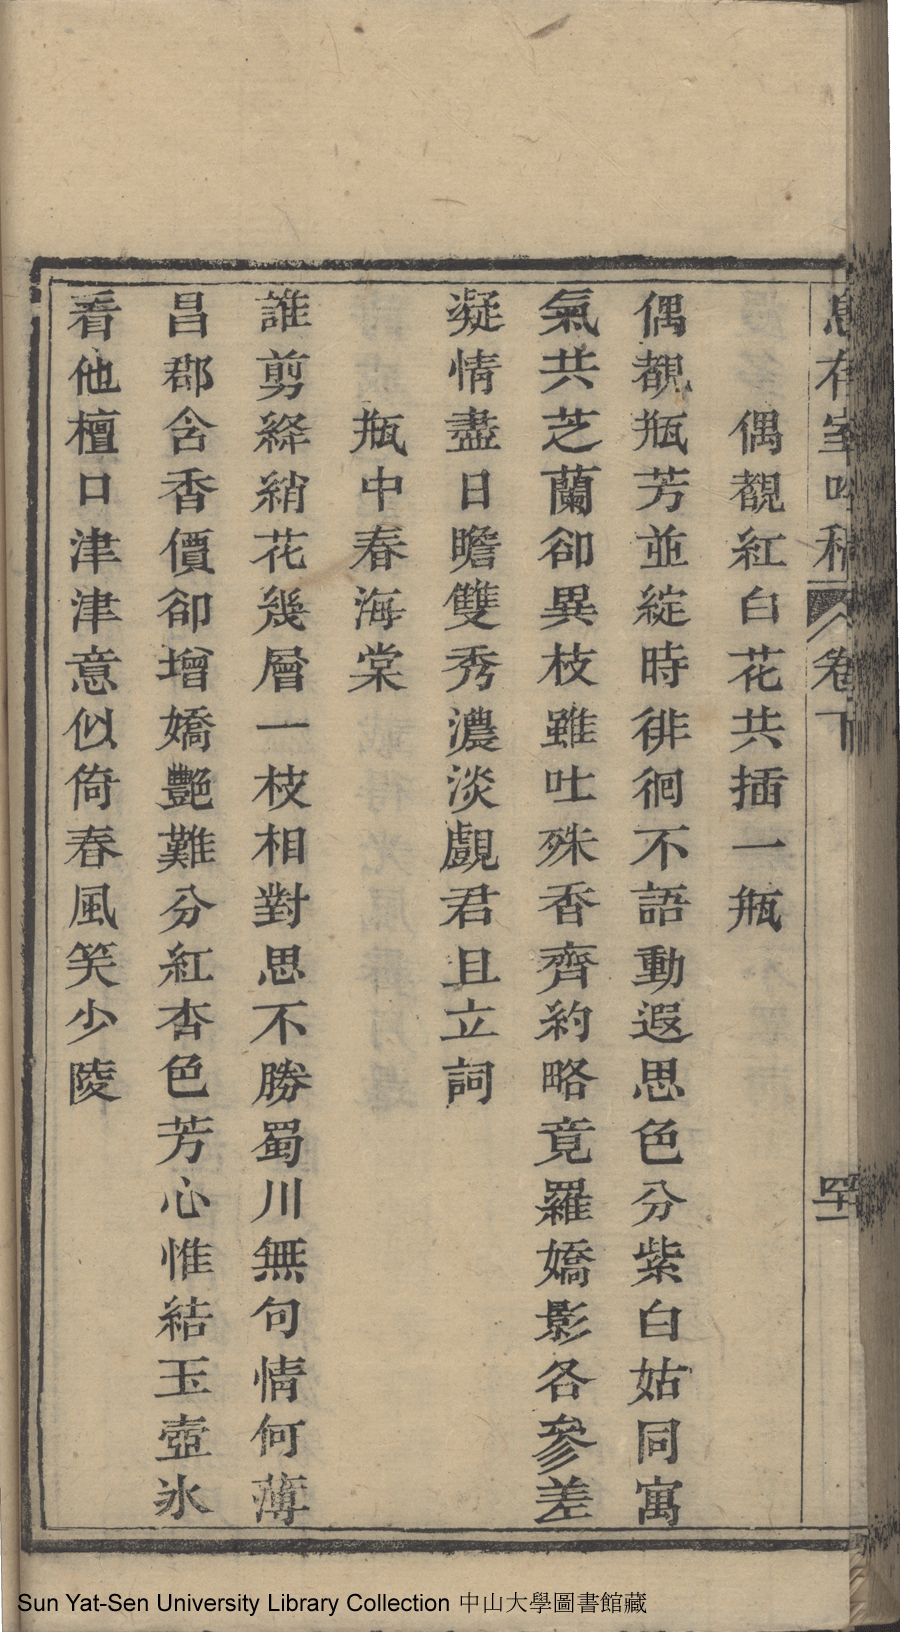 息存室吟稿 卷下 四十一
偶覩紅白花共插一瓶
偶覩瓶芳並綻時徘徊不語動遐思色分紫白姑同寓
氣共芝蘭卻異枝雖吐殊香齊約略竟羅嬌影各參差
凝情盡日瞻雙秀濃淡覷君且立詞
瓶中春海棠
誰剪綘綃花幾層一枝相對思不勝蜀川無句情何薄
昌郡含香價卻增嬌艷難分紅杏色芳心惟結玉壺氷
看他檀口津津意似倚春風笑少陵
Sun Yat-Sen University Library Collection 中山大學圖書館藏